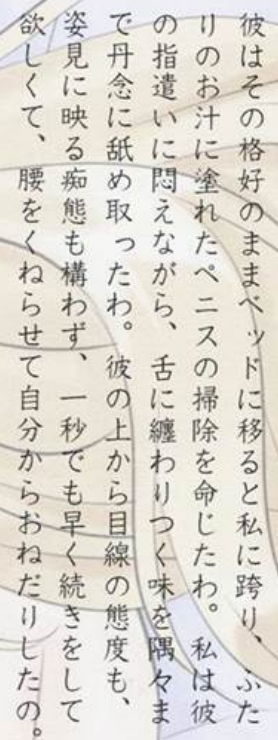 彼はその格好のままベッドに移ると私に跨り、ふた
りのお汁に塗れたペニスの掃除を命じたわ。私は彼
の指遣いに悶えながら、舌に纏わりつく味を隅々ま
で丹念に舐め取ったわ。彼の上から目線の態度も、
姿見に映る痴態も構わず、一秒でも早く続きをして
欲しくて、腰をくねらせて自分からおねだりしたの。